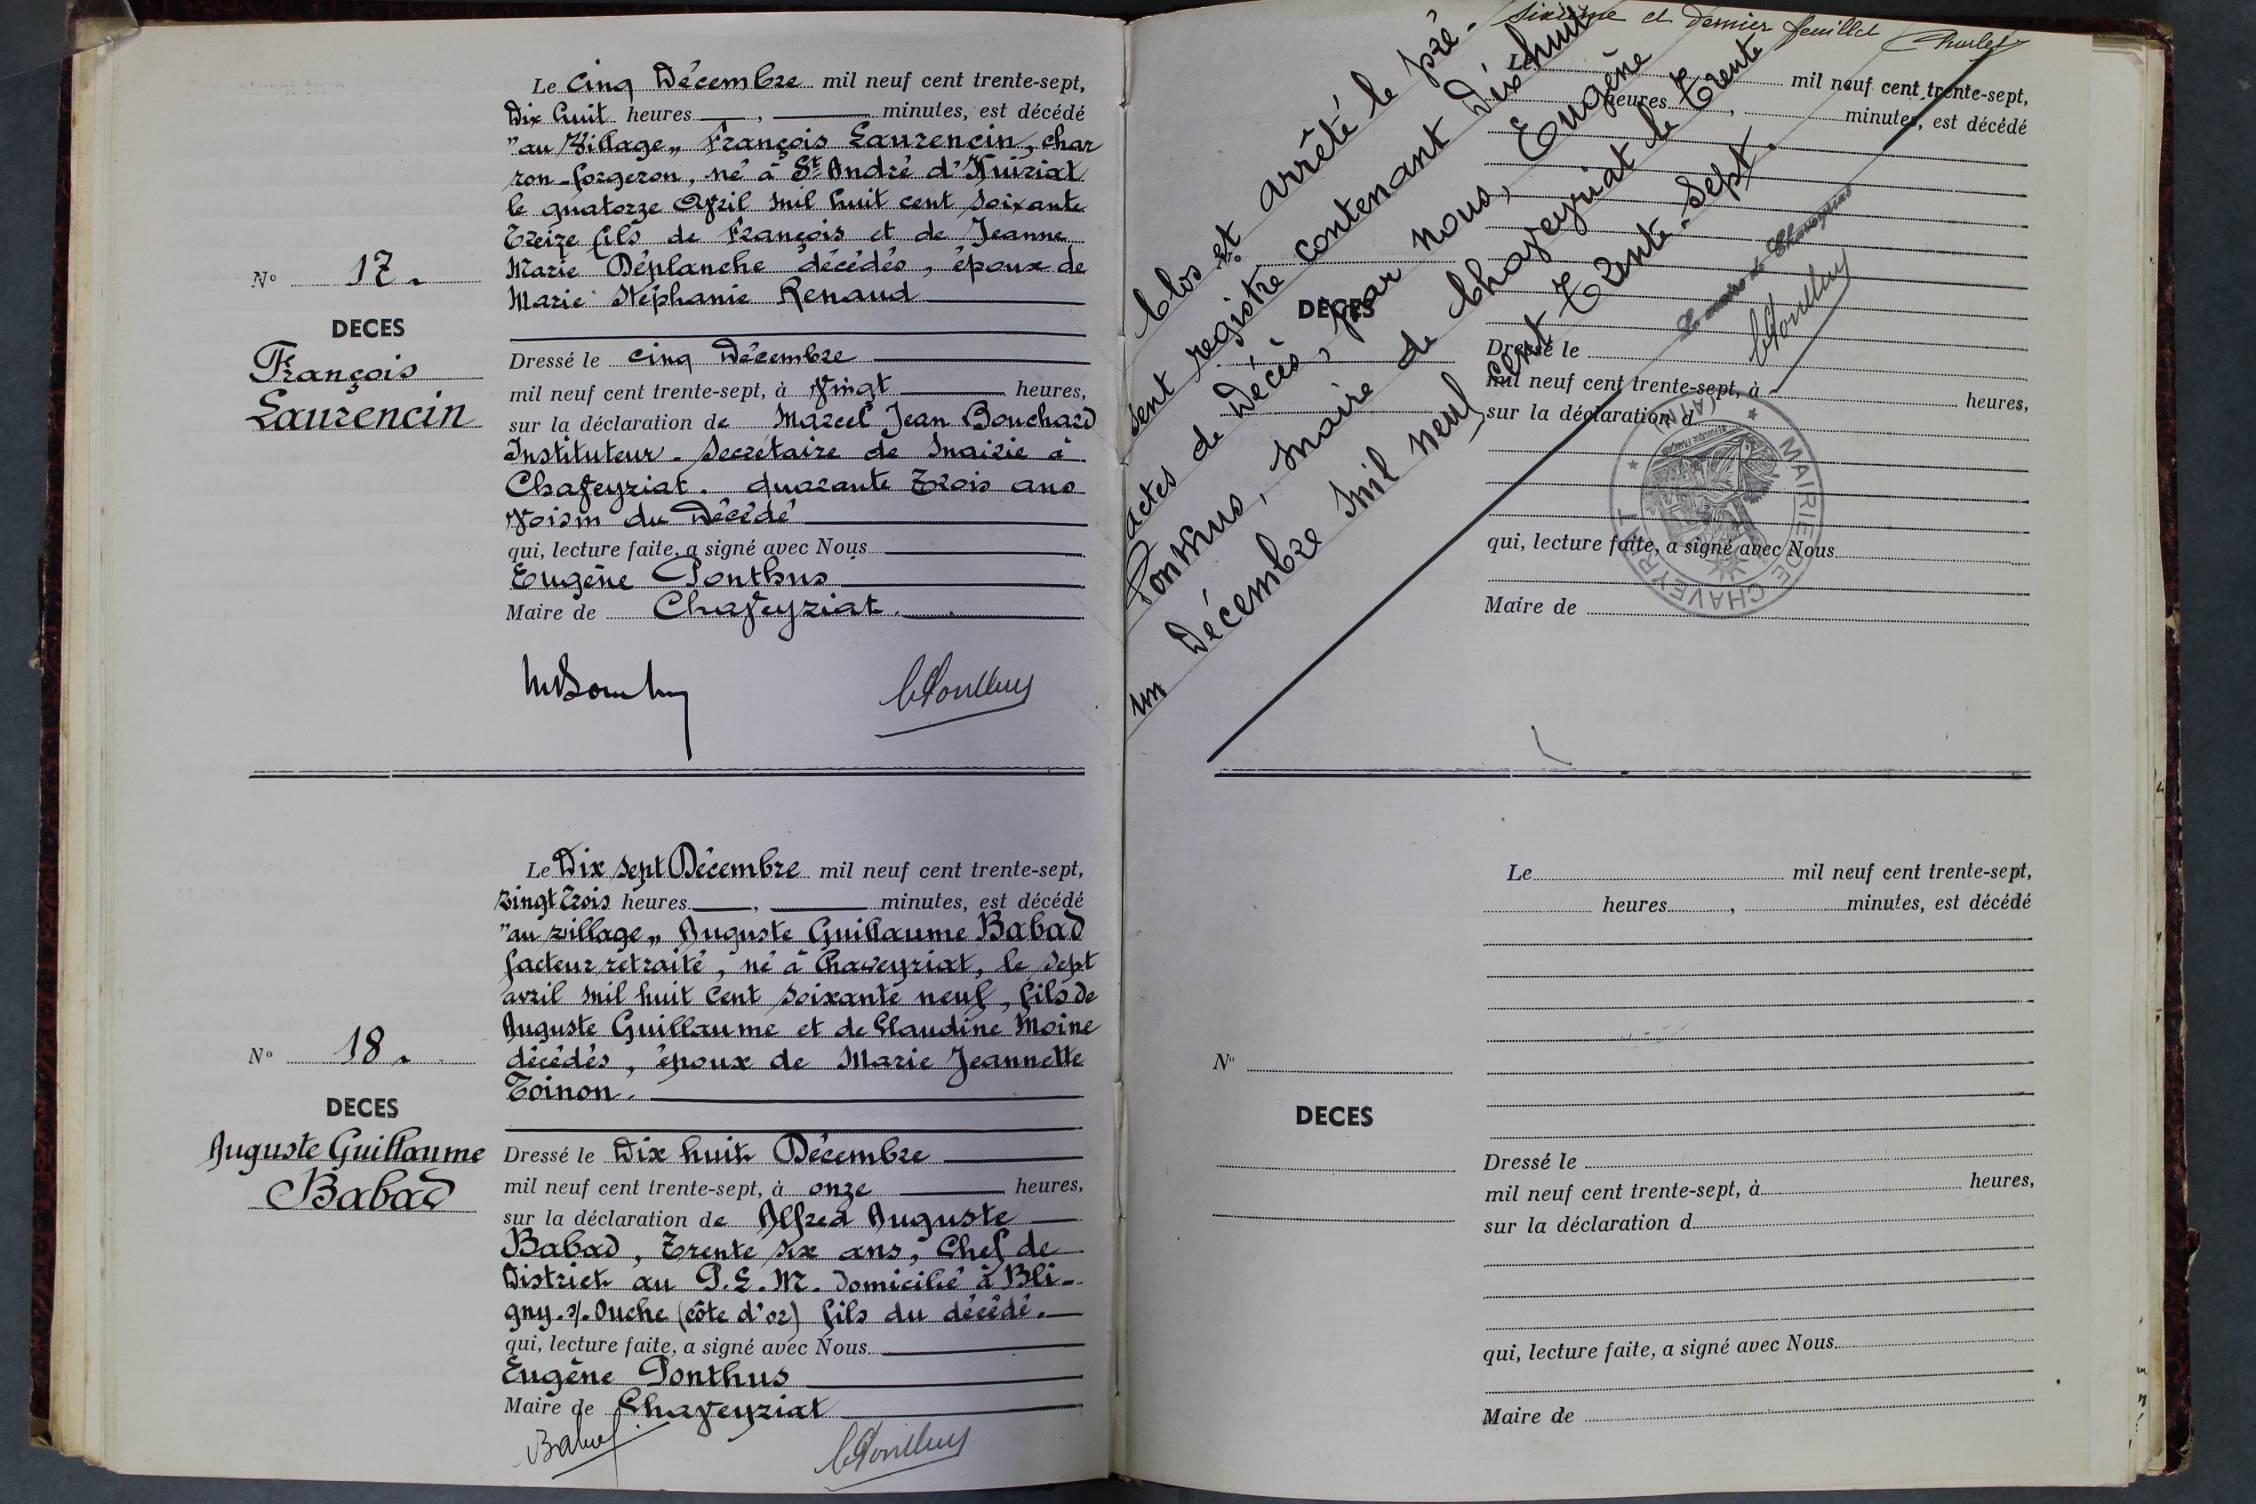 Le cinq Décembre mil neuf cent trente-sept,
Dix huit heures , minutes, est décédé
"au Village" François Laurencin, char
ron-forgeron, né à St André d'Huiriat
le quatorze Avril mil huit cent soixante
Treize fils de François et de Jeanne
Marie Déplanche décédés, époux de
Marie Stéphanie Renaud
No 17.
DECES
François
Laurencin
Dressé le cinq Décembre
mil neuf cent trente-sept, à Vingt heures,
sur la déclaration de Marcel Jean Bouchard
Instituteur-secrétaire de mairie à
Chaveyriat. quarante Trois ans
Voisin du Décédé
qui, lecture faite, a signé avec Nous
Eugène Ponthus
Maire de Chaveyriat.
Le Dix sept Décembre mil neuf cent trente-sept,
vingt Trois heures , minutes, est décédé
"au village" Auguste Guillaume Babad
facteur retraité, né à Chaveyriat, le sept
avril mil huit cent soixante neuf, fils de
Auguste Guillaume et de Claudine Moine
décédés, époux de Marie Jeannette
Toinon.
No 18.
DECES
Auguste Guillaume
Babad
Dressé le Dix huit Décembre
mil neuf cent trente-sept, à onze heures,
sur la déclaration de Alfred Auguste
Babad, Trente six ans, Chef de
District au P.L.M. domicilié à Bli-
gny-s/-Ouche (côte d'or) fils du décédé.
qui, lecture faite, a signé avec Nous
Eugène Ponthus
Maire de Chaveyriat
Babad
sixième et dernier feuillet
Clos et arrêté le pré-
sent registre contenant Dix huit
actes de Décès, par nous, Eugène
Ponthus, maire de Chaveyriat le Trente
un Décembre mil neuf cent Trente-sept.
Le maire de Chaveyriat
Le
mil neuf cent trente-sept,
heures , minutes, est décédé
No
DECES
Dressé le
mil neuf cent trente-sept, à heures,
sur la déclaration d
MAIRIE DE CHAVEYRIAT (AIN)
qui, lecture faite, a signé avec Nous
Maire de
Le mil neuf cent trente-sept,
heures , minutes, est décédé
No
DECES
Dressé le
mil neuf cent trente-sept, à heures,
sur la déclaration d
qui, lecture faite, a signé avec Nous
Maire de